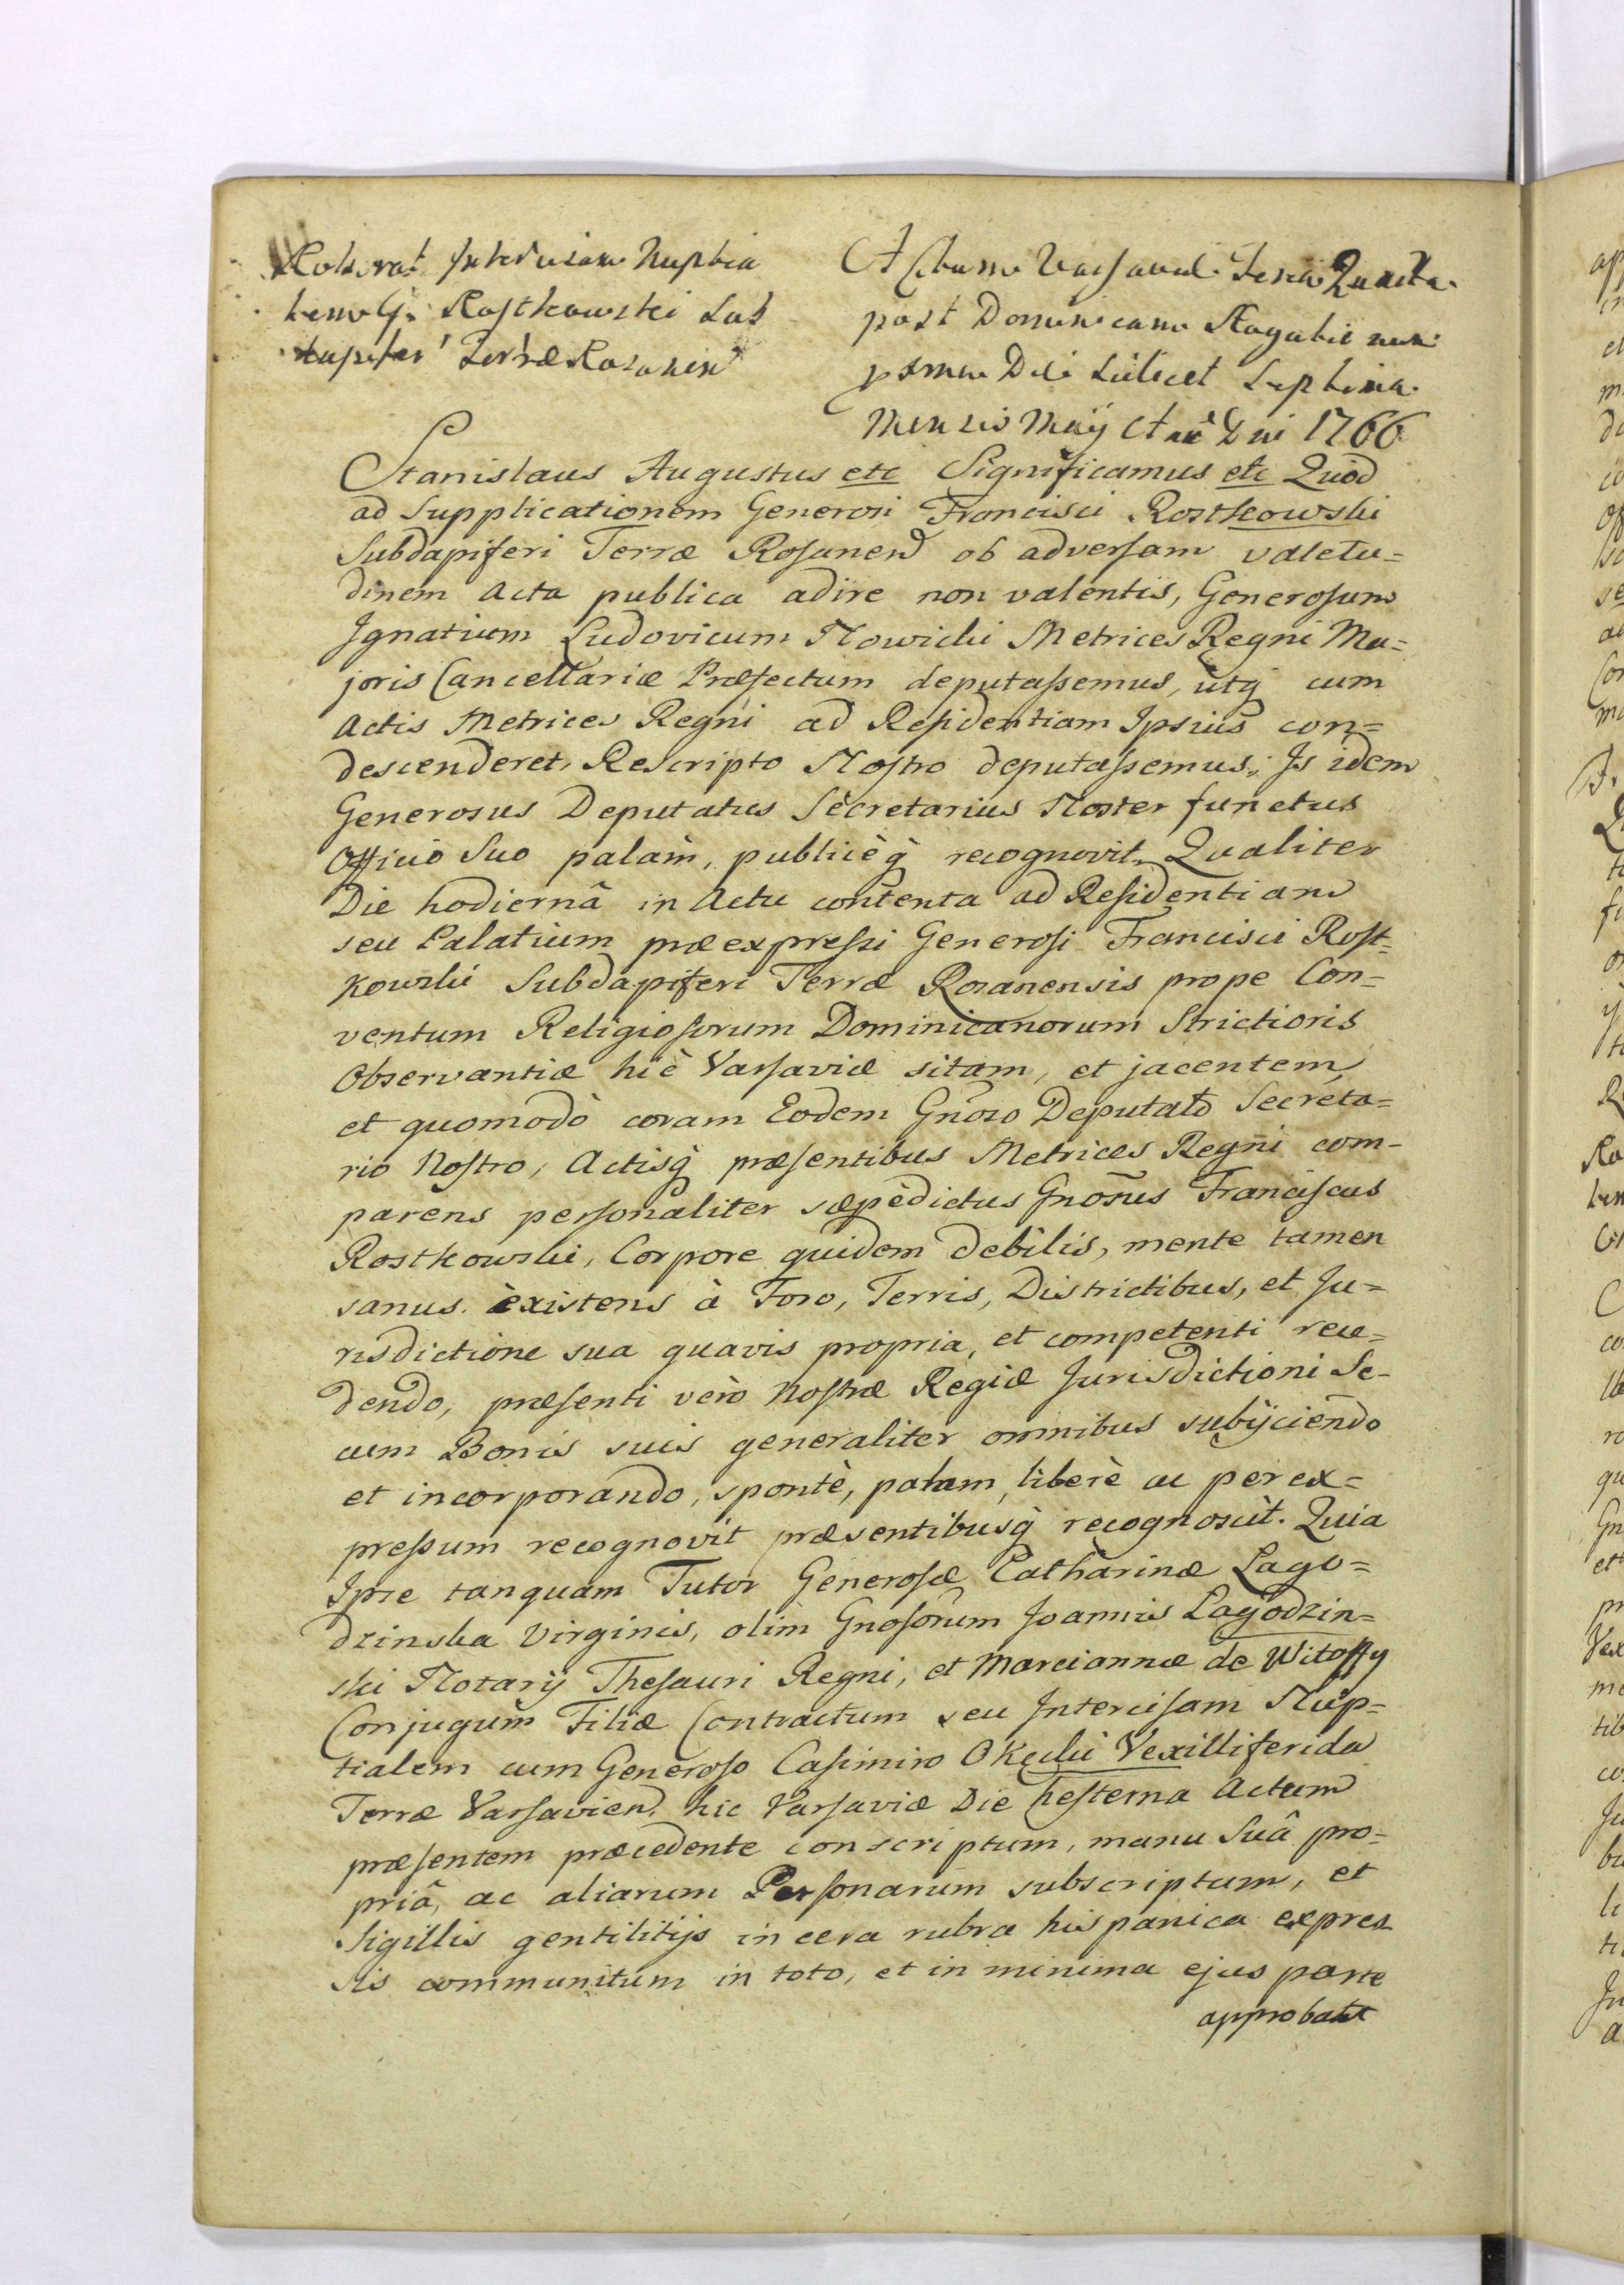 Roborat Intercisam Nuptia
lem G. Rostkowski Sub
dapifer Terræ Rozanen
Actum Varsaviæ Feria Quarta
post Dominicam Rogatio num
pxma Die scilicet Septima
Mensis Maij Ano Dni 1766
Stanislaus Augustus etc Significamus etc Quod
ad Supplicationem Generosi Francisci Rostkowski
Subdapiferi Terræ Rosanen ob adversam valetu=
dinem Acta publica adire non valentis, Generosum
Ignatium Ludovicum Nowicki Metrices Regni Ma=
joris Cancellariæ Præfectum deputassemus, utq cum
Actis Metrices Regni ad Residentiam Ipsius con=
descenderet, Rescripto Nostro deputassemus; Is idem
Generosus Deputatus Sècretarius Noster functus
Officio Suo palàm, publicèq recognovit, Qualiter
Die hodiernâ in Actu contenta ad Residentiam
seu Palatium præexpressi Generosi Francisci Rost=
kowski Subdapiferi Terræ Rozanensis prope Con=
ventum Religiosorum Dominicanorum Strictioris
Observantiæ hic Varsaviæ sitam, et jacentem,
et quomodò coram Eodem Gnoso Deputato Secreta=
rio Nostro, Actisq præsentibus Metrices Regni com-
parens personaliter sæpèdictus Gnosus Franciscus
Rostkowski, Corpore quidem debilis, mente tamen
sanus èxistens à Foro, Terris, Districtibus, et Ju=
risdictione sua quavis propria, et competenti rece=
dendo, præsenti verò Nostræ Regiæ Jurisdictioni Se-
cum Bonis suis generaliter omnibus subijciendo
et incorporando, spontè, palam, liberè ac per ex=
pressum recognovit præsentibusq recognoscit. Quia
Ipse tanquam Tutor Generosæ Catharinæ Lago=
dzinska Virginis, olim Gnosorum Joannis Lagodzin=
ski Notarij Thesauri Regni, et Marciannæ de Witossy
Conjugum Filiæ Contractum seu Intercisam Nup=
tialem cum Generoso Casimiro Okęcki Vexilliferida
Terræ Varsavien. hic Varsaviæ Die hesterna Actum
præsentem præcedente conscriptum, manu Suâ pro=
priâ, ac aliarum Personarum subscriptum, et
Sigillis gentilitijs in cera rubra hispanica expres
sis communitum in toto, et in minima ejus parte
approbat